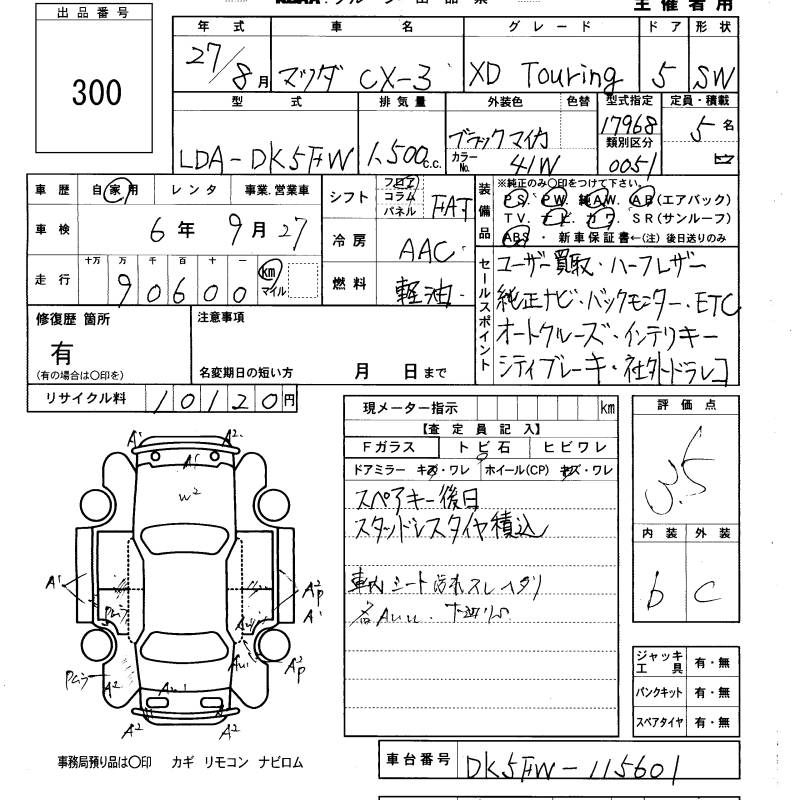 主催者用
出品番号
300
年式 車名 グレード ドア 形状
27/8月 マツダ CX-3 XD Touring 5 SW
型式 排気量 外装色 色替 型式指定 定員・積載
LDA-DK5FW 1,500c.c. ブラックマイカ 17968 5名
類別区分
カラーNo. 41W 0051
車歴 自家用 レンタ 事業.営業車
シフト フロア コラム パネル FAT
装備品 ※純正のみ〇印をつけて下さい。
PS. PW. 純AW. AB(エアバック)
TV. ナビ カワ SR(サンルーフ)
ABS ・ 新車保証書←(注) 後日送りのみ
車検 6年 9月27
冷房 AAC
走行 十万 万 千 百 十 一
90600 km マイル
燃料 軽油
セールスポイント
ユーザー買取・ハーフレザー
純正ナビ・バックモニター・ETC
オートクルーズ・インテリキー
シティブレーキ・社外ドラレコ
修復歴 箇所
有
(有の場合は〇印を)
注意事項
名変期日の短い方 月 日まで
リサイクル料 10120円
現メーター指示 km
【査定員記入】
Fガラス トビ石 ヒビワレ
ドアミラー キズ・ワレ ホイール(CP) キズ・ワレ
スペアキー後日
スタッドレスタイヤ積込
車内シート汚れスレ
評価点
3.5
内装 外装
b C
A1 A2
A1
W2
A1 A2P
A1
A2 A2P
A2 A2
ジャッキ工具 有・無
パンクキット 有・無
スペアタイヤ 有・無
事務局預り品は〇印 カギ リモコン ナビロム
車台番号 DK5FW-115601